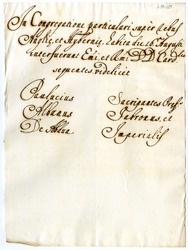 In Congregatione particulari super rebus
Angliæ, et Hyberniæ habita die 16 Augusti
interfuerunt Emi, et Rmi DDD Card
sequentes videlicet
Paulucius
Albanus
De Abdua
Sacripantes Pref.
Fabronus, et
Imperialis